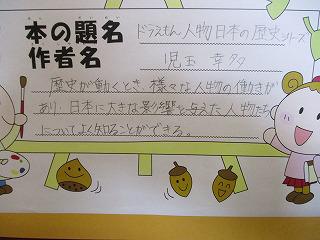 本の題名
ドラえもん人物日本の歴史シリーズ
作者名
児玉 幸多
歴史が動くとき、様々な人物の働きが
あり、日本に大きな影響を与えた人物たち
についてよく知ることができる。